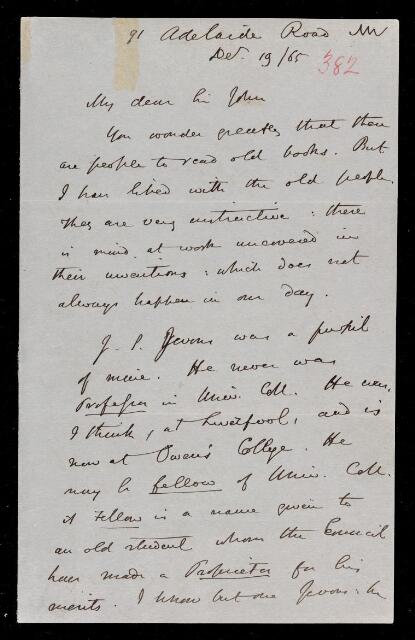 91 Adelaide Road NW
Decr. 19/65
382
My dear Sir John
You wonder greatly that there
are people to read old books. But
I have lived with the old people.
They are very instructive: there
is mind at work uncovered in
their inventions: which does not
always happen in our day.
J. S. Jevons was a pupil
of mine. He never was
Professor in Univ. Coll. He was,
I think, at Liverpool, and is
now at Owen's College. He
may be fellow of Univ. Coll.
A Fellow is a name given to
an old student whom the Council
have made a Proprietor for his
merits. I know but one Jevons: he